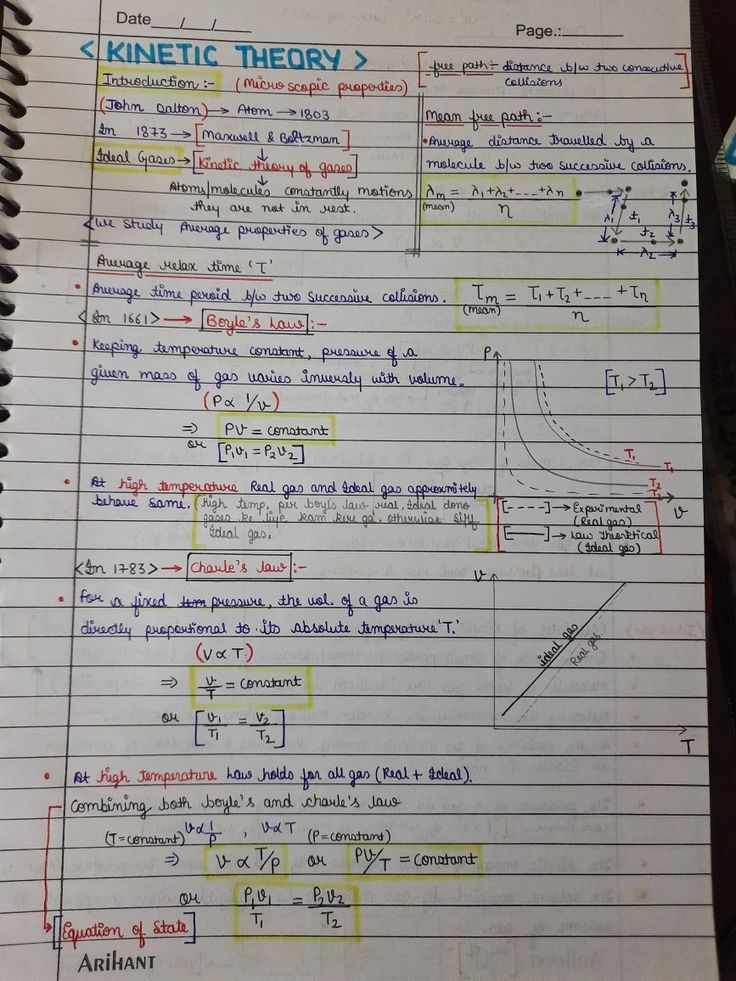 Date__/__/__ Page.:
< KINETIC THEORY >
[free path:- distance b/w two consecutive
collisions]
Introduction:- (Microscopic properties)
(John Dalton) → Atom → 1803
In 1873 → [Maxwell & Boltzman]
Ideal Gases → [Kinetic theory of gases]
Atoms/molecules constantly motions
they are not in rest.
<we study Average properties of gases>
Mean free path:-
• Average distance travelled by a
molecule b/w two successive collisions.
λm = λ1+λ2+----+λn / n
(mean)
λ1 t1 t2 λ2 λ3 t3
Average relax time 'T'
• Average time peroid b/w two successive collisions.
Tm = T1+T2+--- +Tn / n
(mean)
<In 1661> → Boyle's Law:-
• Keeping temperature constant, pressure of a
given mass of gas varies inversly with volume.
(P∝ 1/v)
⇒ PV = constant
or [P1V1 = P2V2]
P
[T1 > T2]
T1
T1
T2
T2
V
• At high temperature Real gas and Ideal gas approximitely
behave same.
(High temp. par boyls law real, ideal dono
gases ke liye kam kere ga, otherwise
Ideal gas.
[----] → Experimental
(Real gas)
[——] → Law Theoritical
(Ideal gas)
<In 1783> → Charle's law:-
• For a fixed pressure, the vol. of a gas is
directly proportional to its absolute temperature 'T.'
(V∝T)
⇒ V/T = constant
or [V1/T1 = V2/T2]
V
ideal gas
Real gas.
T
• At high temperature Law holds for all gas (Real + Ideal).
Combining both boyle's and charle's law
(T=constant) V∝1/P , V∝T (P=constant)
⇒ V ∝ T/P or PV/T = constant
or P1V1/T1 = P2V2/T2
[Equation of State]
ARIHANT